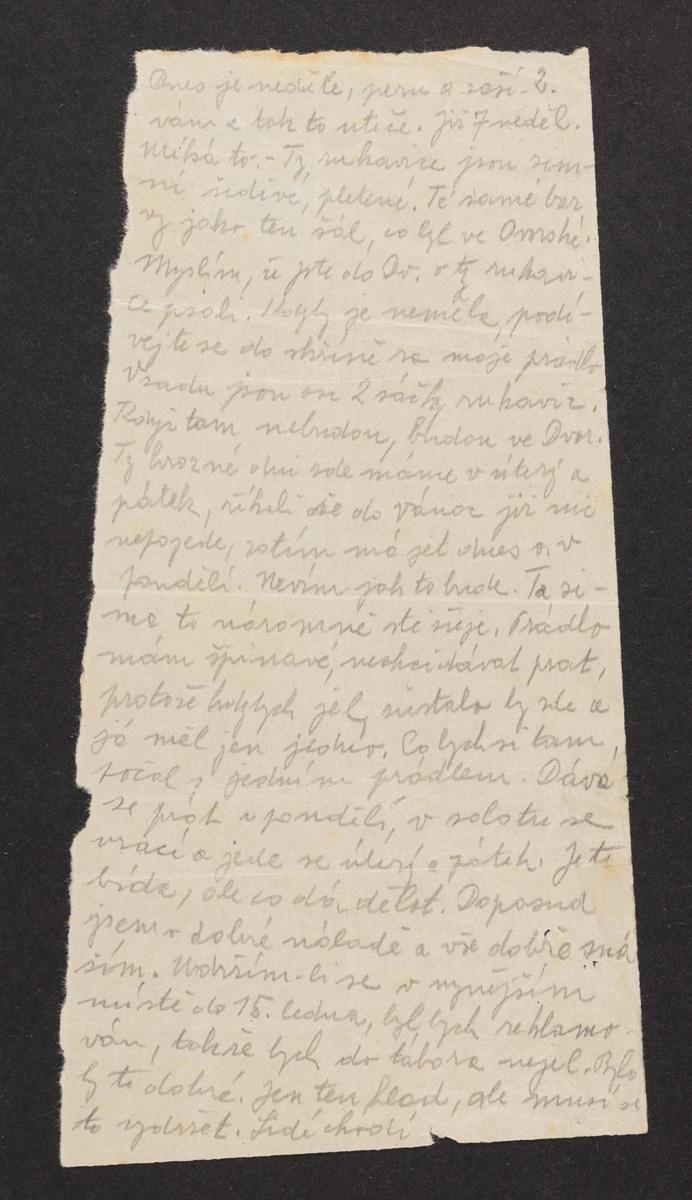 Dnes je neděle, peru a zaší-2.
vám a tak to uteče. Již 7 neděl.
Utíká to. - Ty rukavice jsou zim-
ní šedivé, pletené. Té samé bar
vy jako ten šál, co byl ve Dvorské.
Myslím, že jste do Dv. o ty rukavi-
ce psali. Kdyby je neměla, podí-
vejte se do skříně za moje prádlo
Vzadu jsou asi 2 sáčky rukavic.
Když tam nebudou, budou ve Dvor.
Ty hrozné dni zde máme v úterý a
pátek, říkali že do vánoc již nic
nepojede, zatím má jet dnes a v
pondělí. Nevím jak to bude. Ta zi-
ma to náramně stěžuje. Prádlo
mám špinavé, nechci dávat prát,
protože kdybych jel, zůstalo by zde a
já měl jen jedno. Co bych si tam
počal s jedním prádlem. Dává
se prát v pondělí, v sobotu se
vrací a jede se úterý a pátek. Je to
bída, ale co dá dělat. Doposud
jsem v dobré náladě a vše dobře sná
ším. Udržím-li se v nynějším
místě do 15. ledna, byl bych reklamo-
ván, takže bych do tábora nejel. Bylo
by to dobré. Jen ten hlad, ale musí se
to vydržet. Lidé chodí